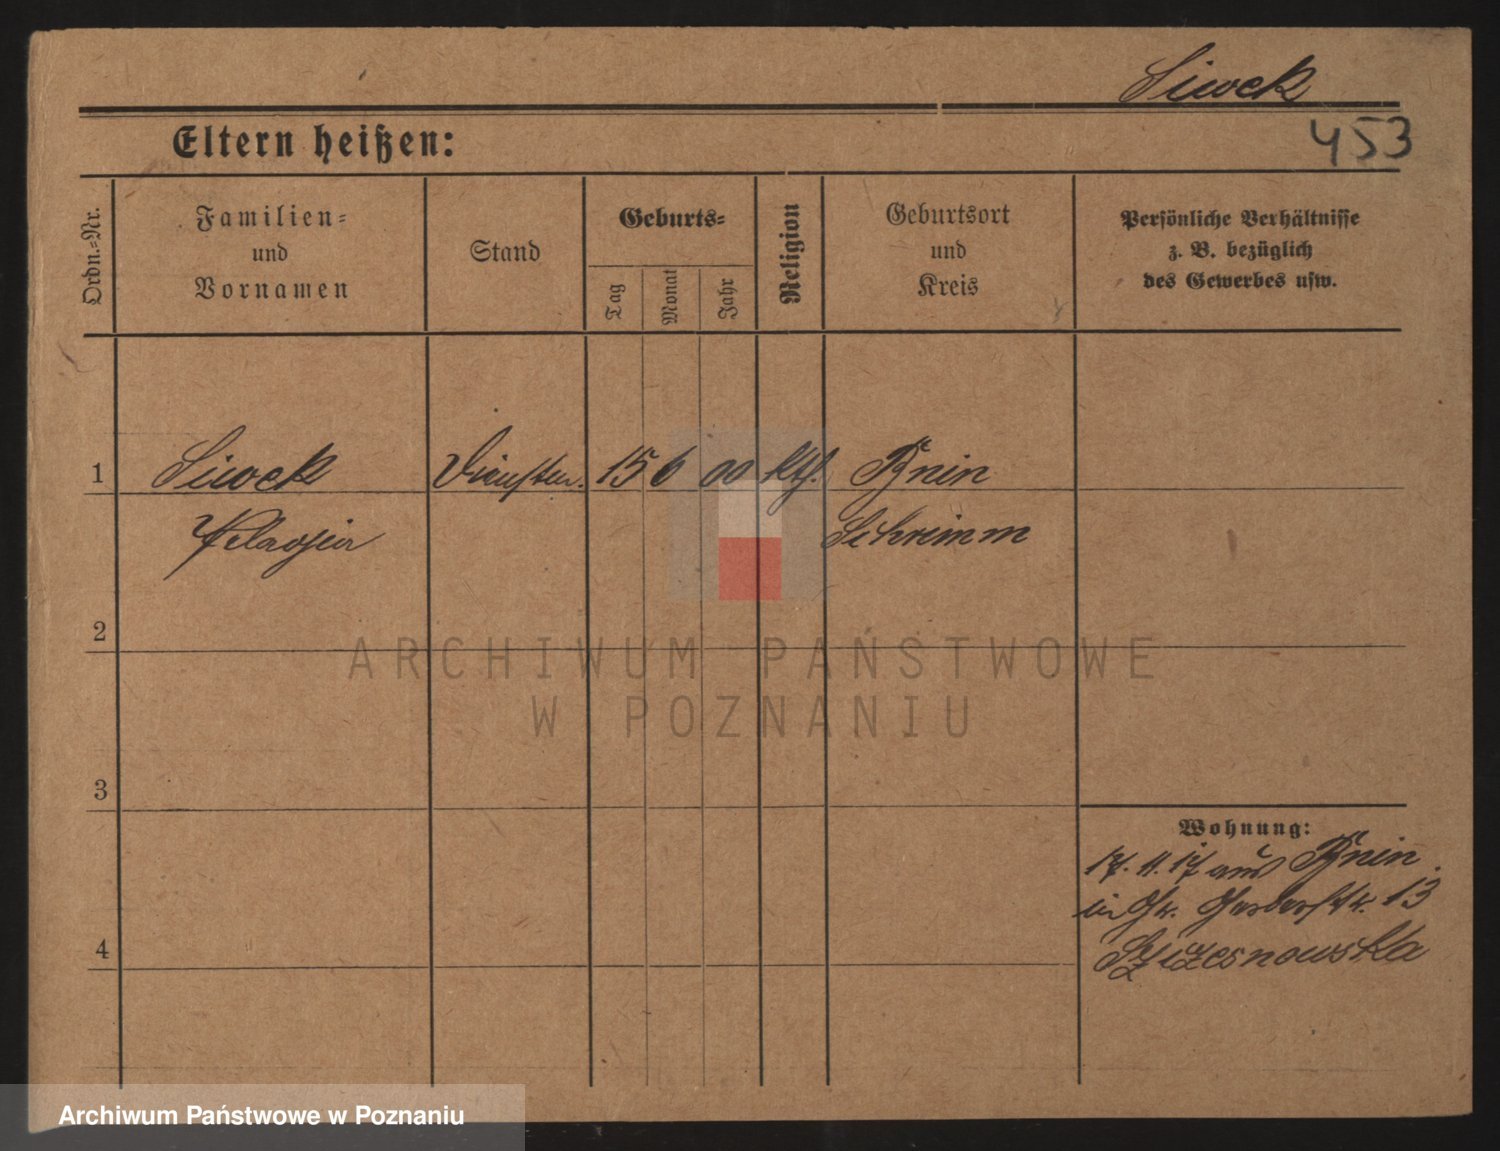 Siwek
453
Eltern heißen:
Ordn.-Nr.
Familien-
und
Vornamen
Stand
Geburts-
Tag
Monat
Jahr
Religion
Geburtsort
und
Kreis
Persönliche Verhältnisse
z. B. bezüglich
des Gewerbes usw.
1 Siwek 15 6 00 kth. Bnin
Pelagia Schrimm
2
3
4
Wohnung:
17. 11. 17 aus Bnin
in Gr. Gerberstr. 13
ARCHIWUM PAŃSTWOWE
W POZNANIU
Archiwum Państwowe w Poznaniu